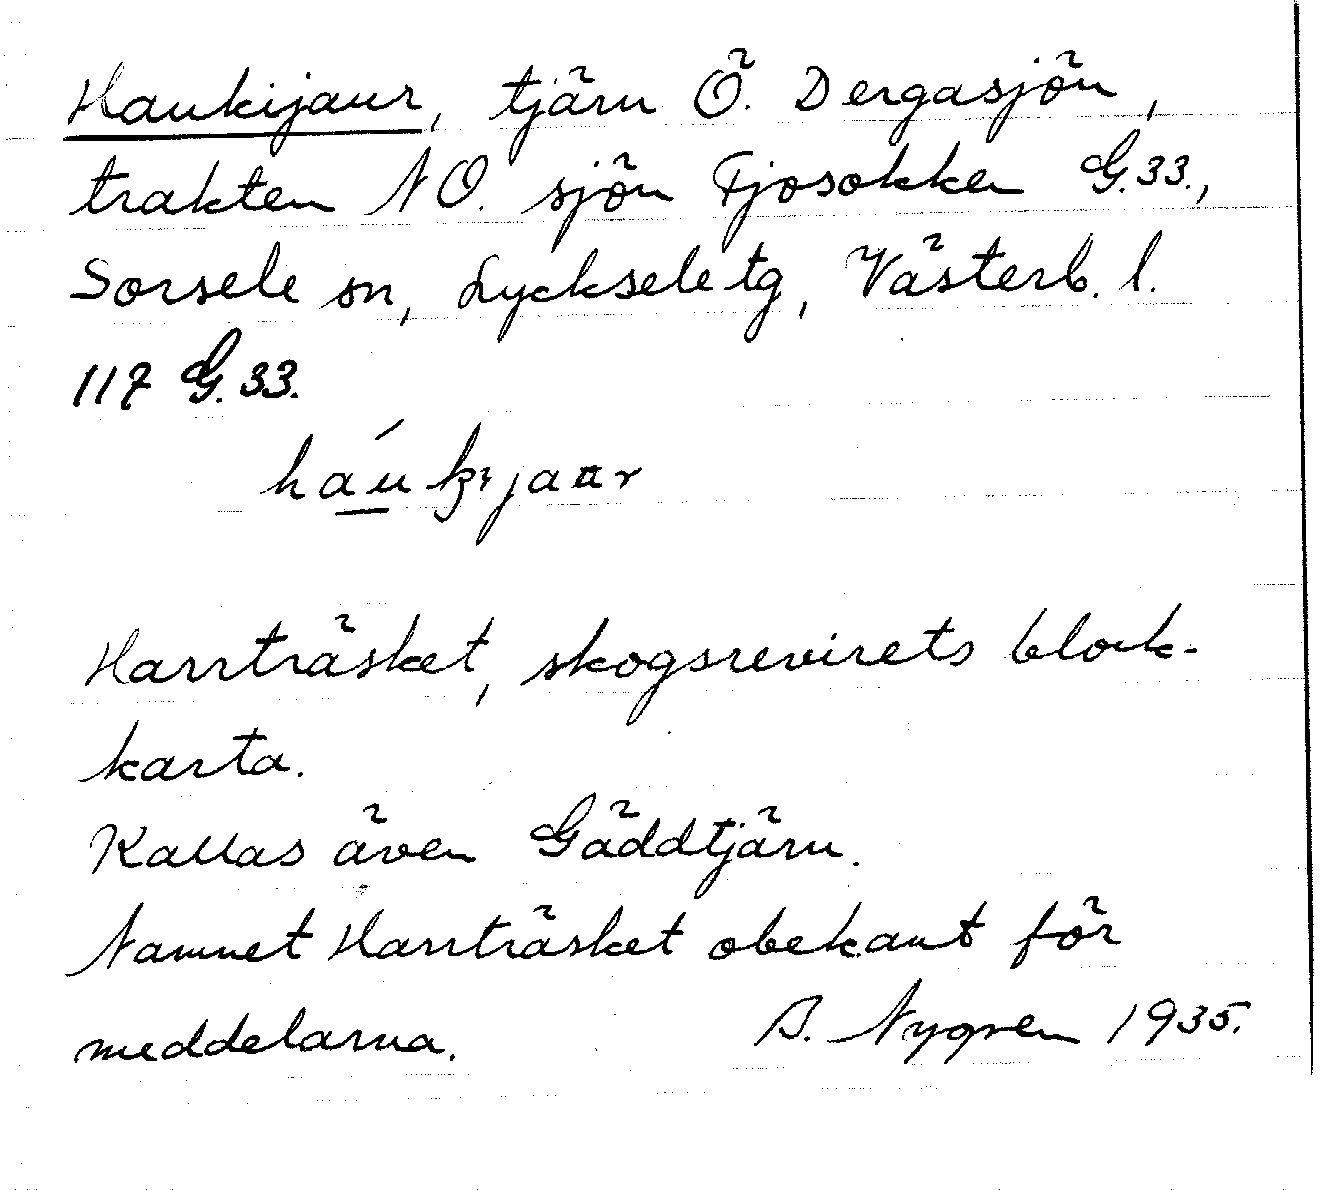 Haukijaur, tjärn Ö. Dergasjön,
trakten NO. sjön Tjosokken G.33.,
Sorsele sn, Lycksele tg, Västerb. l.
117 G.33.
háukijaur
Harrträsket, skogsrevirets block-
karta.
Kallas även Gäddtjärn.
Namnet Harrträsket obekant för
meddelarna. B. Nygren 1935.